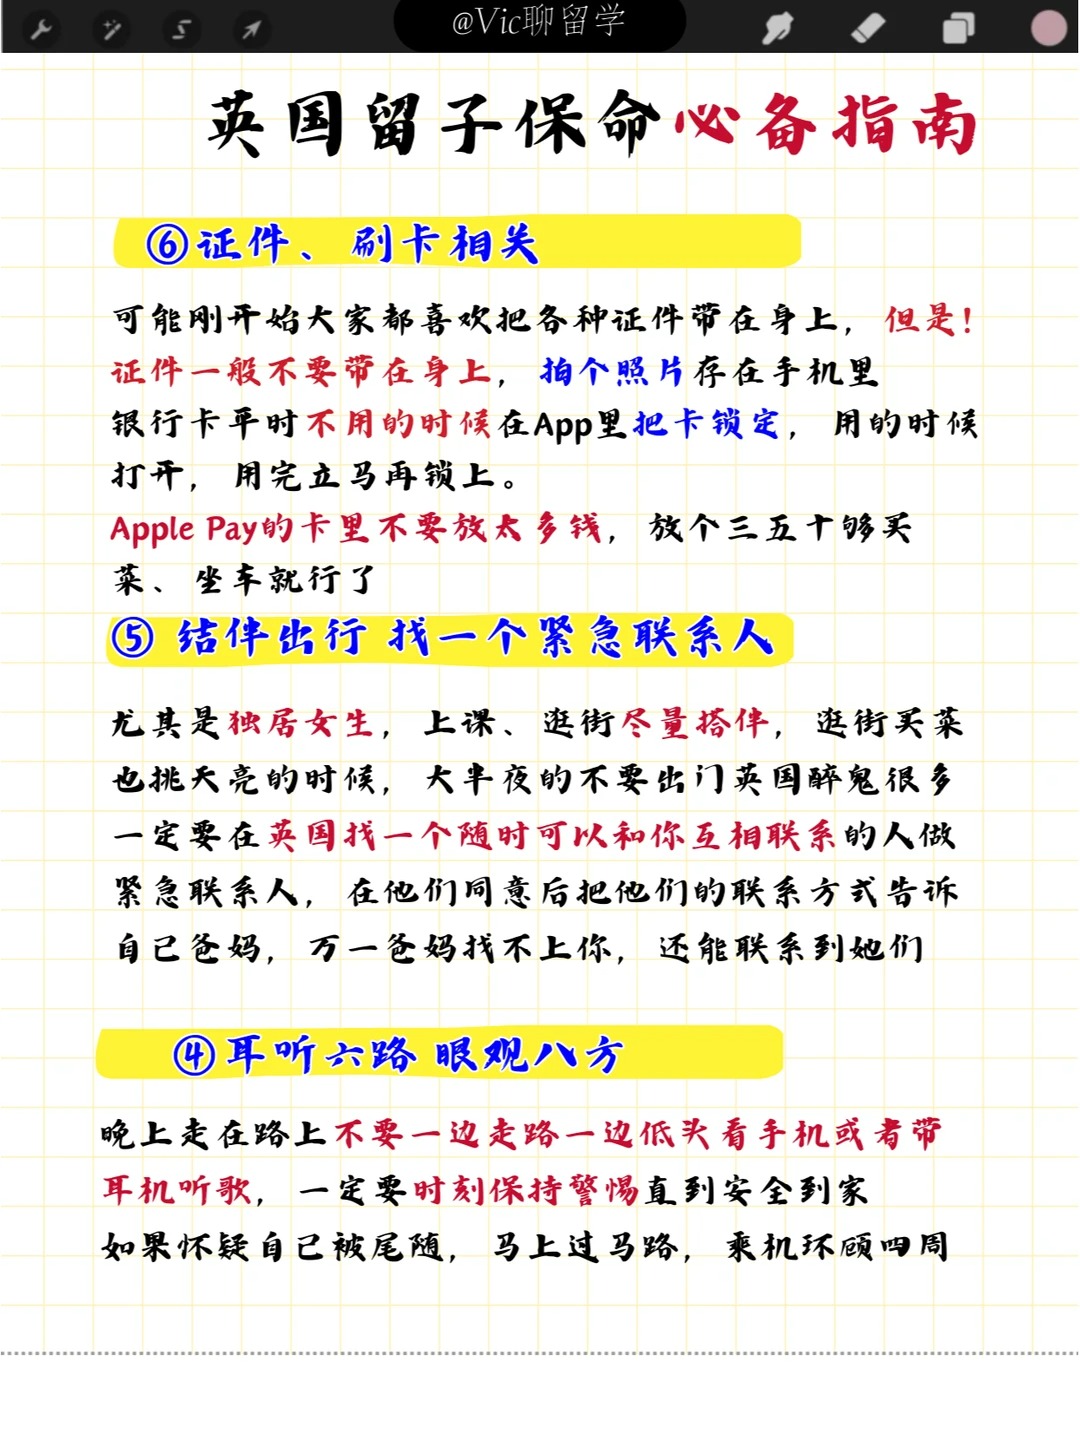 @Vic聊留学
英国留子保命必备指南
⑥证件、刷卡相关
可能刚开始大家都喜欢把各种证件带在身上，但是！
证件一般不要带在身上，拍个照片存在手机里
银行卡平时不用的时候在App里把卡锁定，用的时候
打开，用完立马再锁上。
Apple Pay的卡里不要放太多钱，放个三五十够买
菜、坐车就行了
⑤ 结伴出行 找一个紧急联系人
尤其是独居女生，上课、逛街尽量搭伴，逛街买菜
也挑天亮的时候，大半夜的不要出门英国醉鬼很多
一定要在英国找一个随时可以和你互相联系的人做
紧急联系人，在他们同意后把他们的联系方式告诉
自己爸妈，万一爸妈找不上你，还能联系到她们
④耳听六路 眼观八方
晚上走在路上不要一边走路一边低头看手机或者带
耳机听歌，一定要时刻保持警惕直到安全到家
如果怀疑自己被尾随，马上过马路，乘机环顾四周